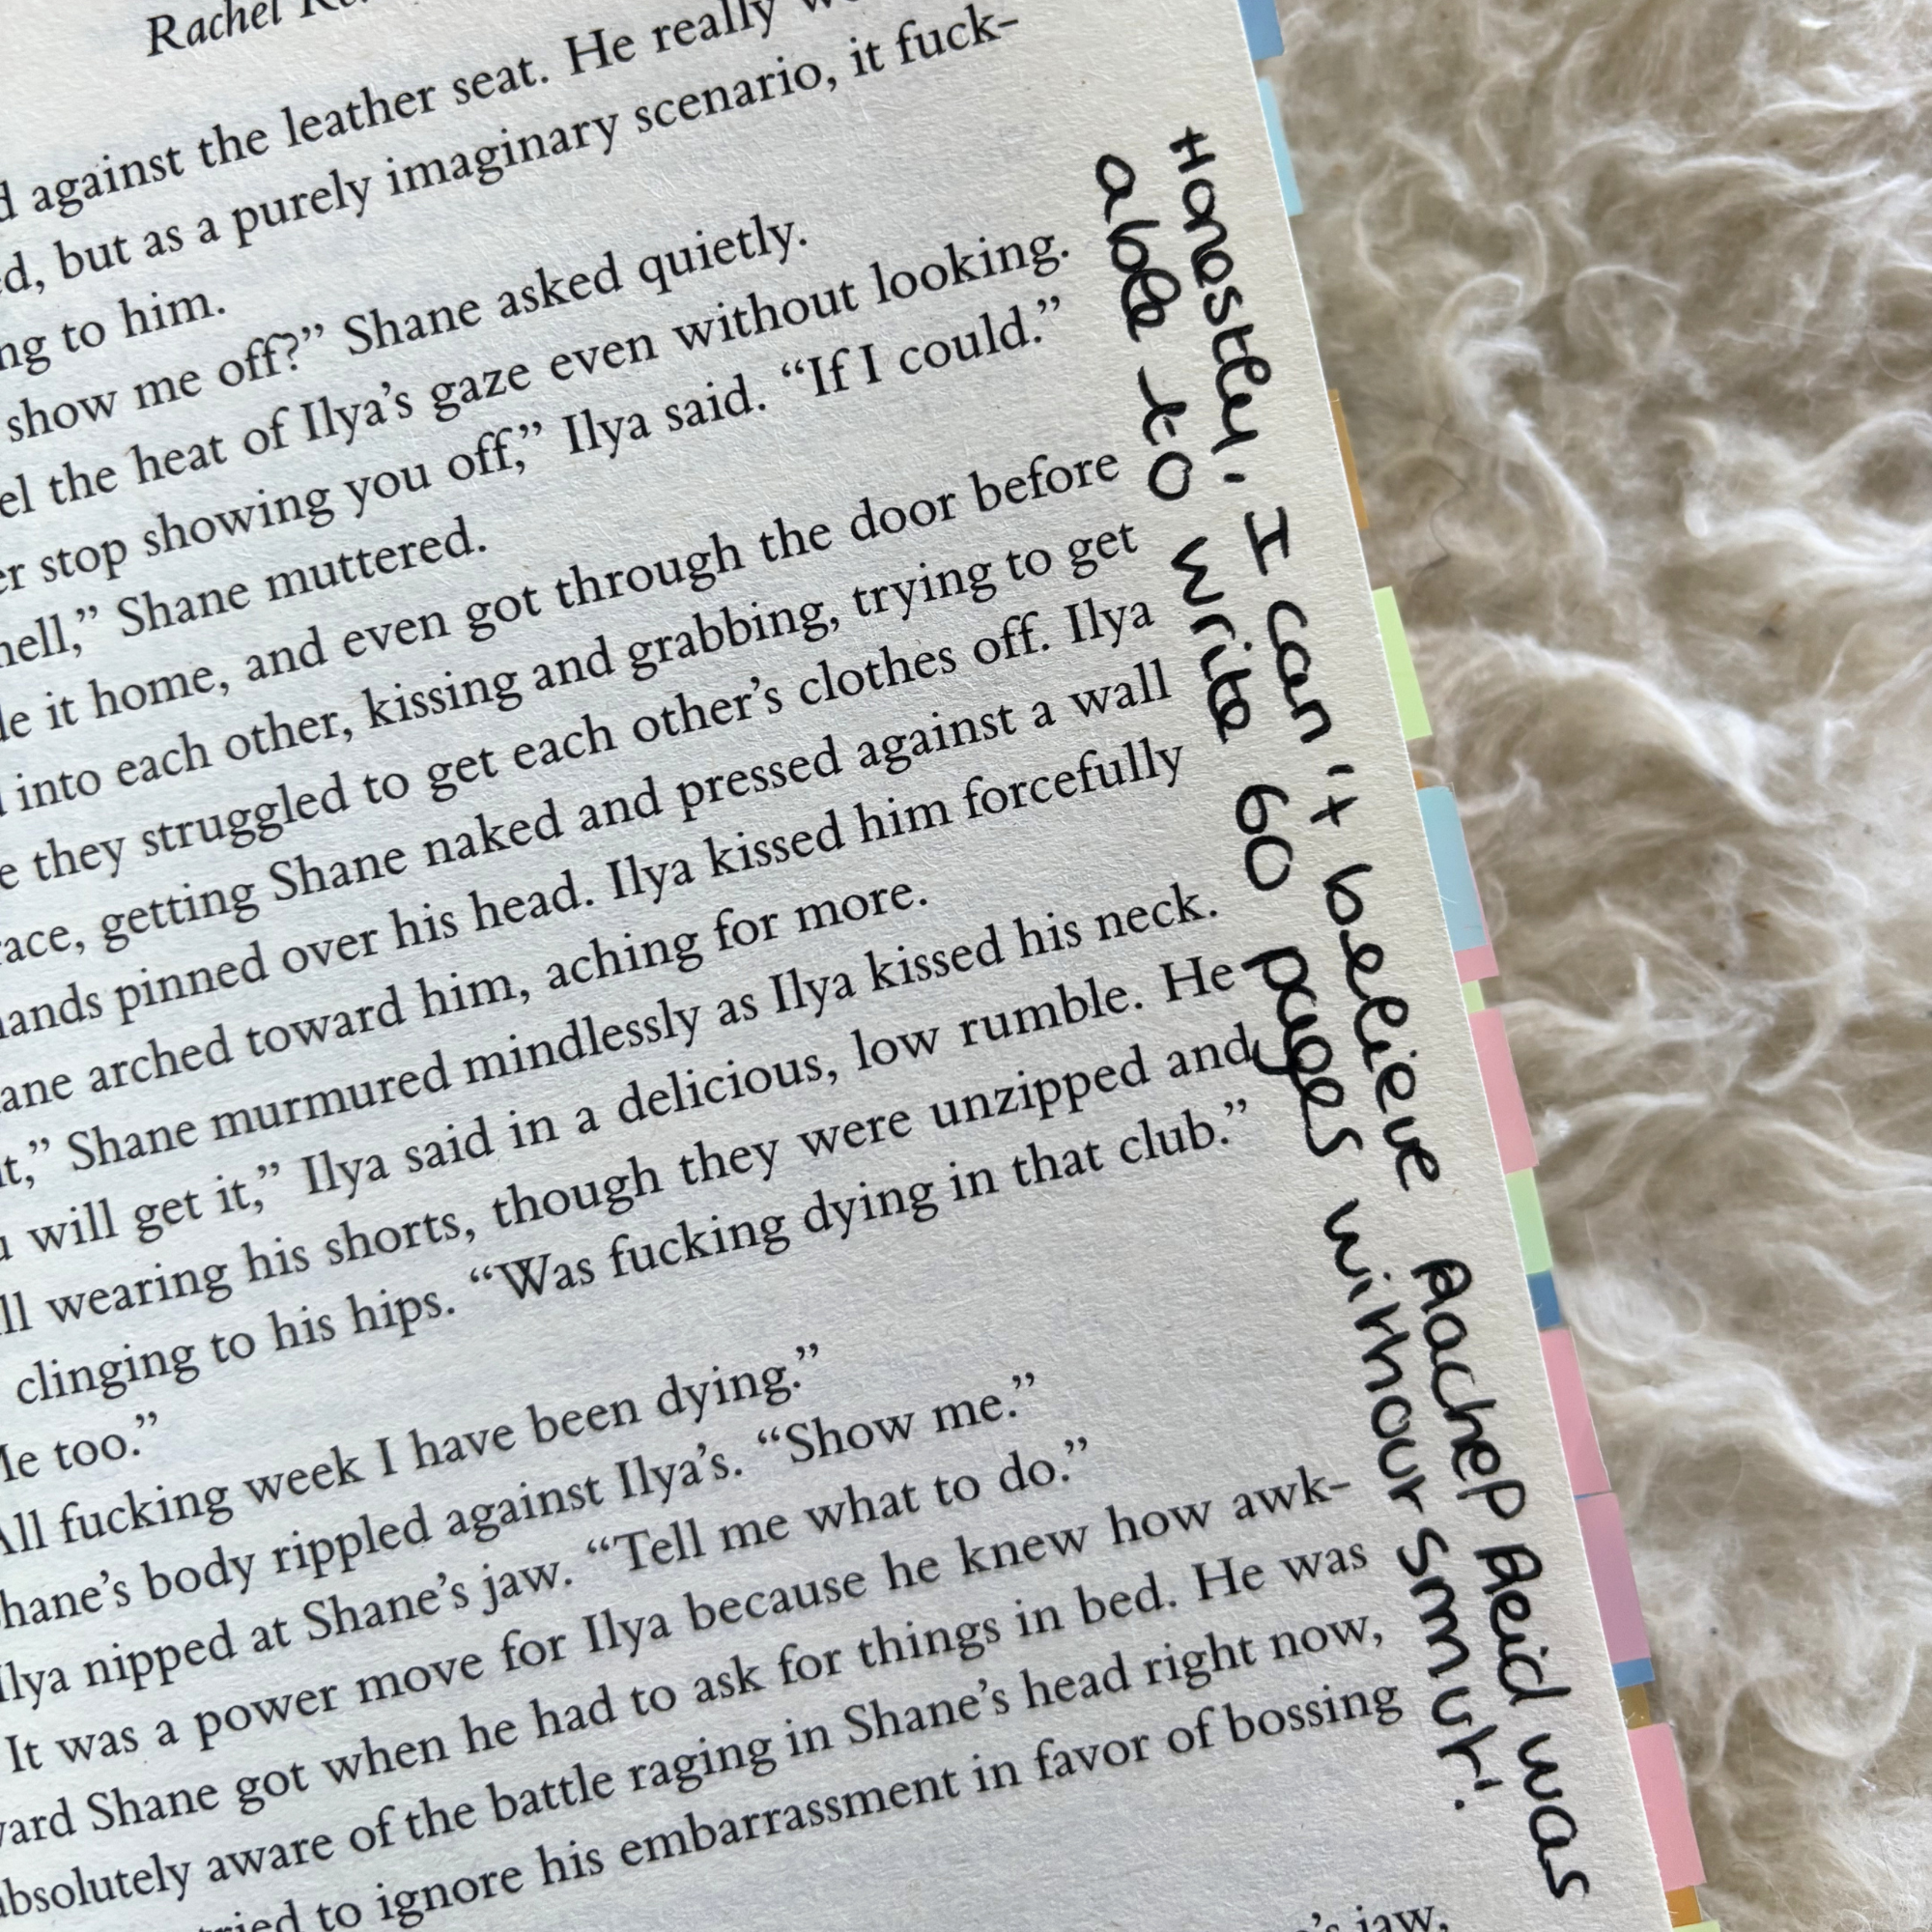 Rachel
against the leather seat. He really
ed, but as a purely imaginary scenario, it fuck-
ng to him.
show me off?” Shane asked quietly.
el the heat of Ilya’s gaze even without looking.
er stop showing you off,” Ilya said. “If I could.”
hell,” Shane muttered.
de it home, and even got through the door before
into each other, kissing and grabbing, trying to get
e they struggled to get each other’s clothes off. Ilya
race, getting Shane naked and pressed against a wall
hands pinned over his head. Ilya kissed him forcefully
ane arched toward him, aching for more.
t,” Shane murmured mindlessly as Ilya kissed his neck.
u will get it,” Ilya said in a delicious, low rumble. He
ll wearing his shorts, though they were unzipped and
clinging to his hips. “Was fucking dying in that club.”
Me too.”
All fucking week I have been dying.”
hane’s body rippled against Ilya’s. “Show me.”
Ilya nipped at Shane’s jaw. “Tell me what to do.”
It was a power move for Ilya because he knew how awk-
ward Shane got when he had to ask for things in bed. He was
absolutely aware of the battle raging in Shane’s head right now,
ried to ignore his embarrassment in favor of bossing
’s jaw,
Honestly. I can't believe Rachel Reid was
able to write 60 pages withour smut!